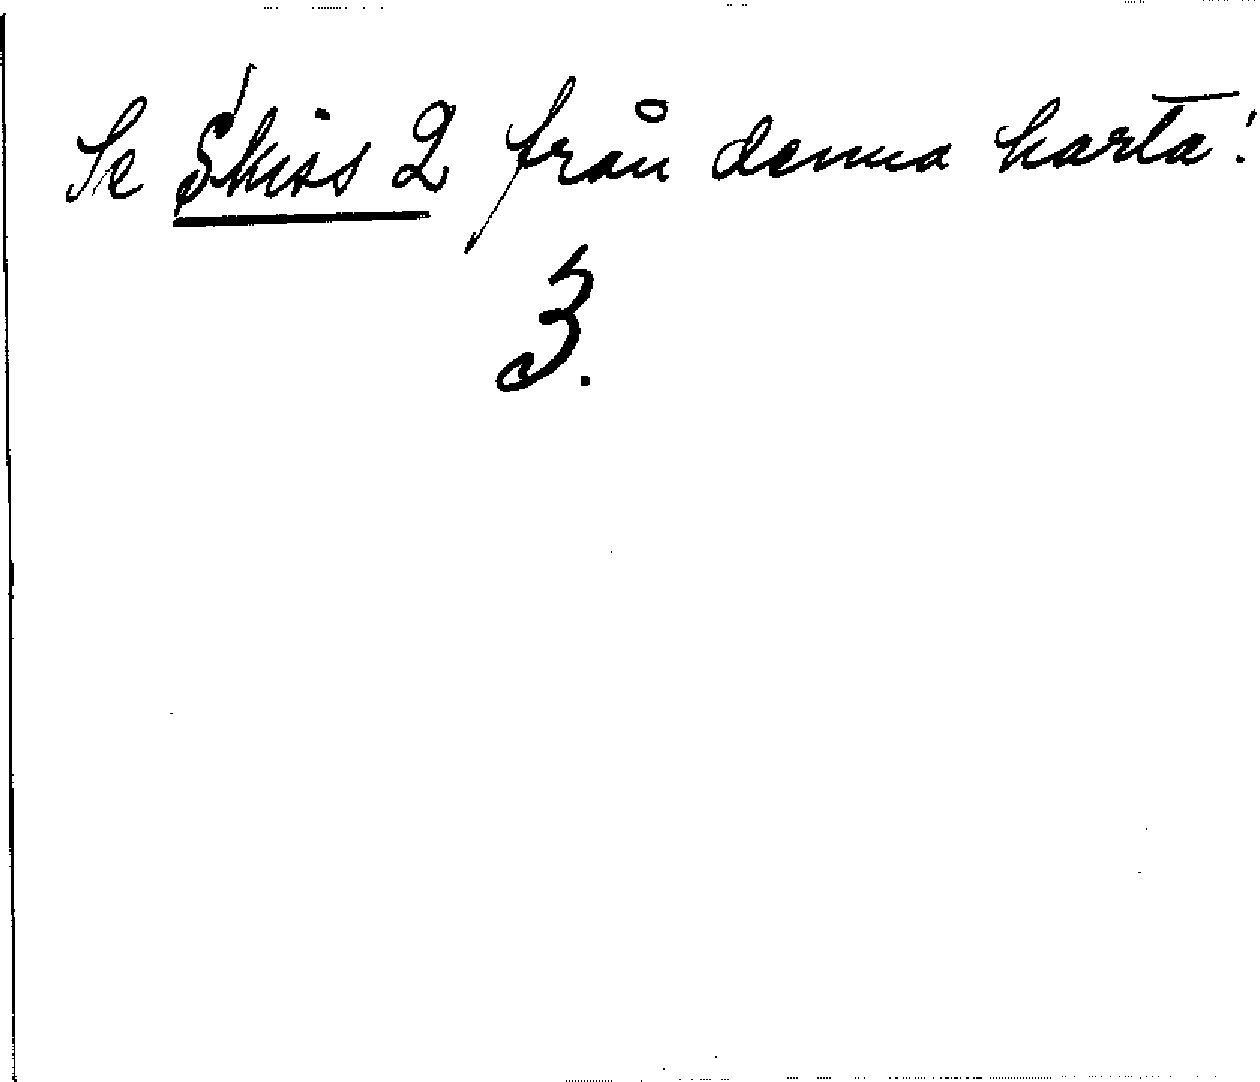 Se Skiss 2 från denna karta!
3.